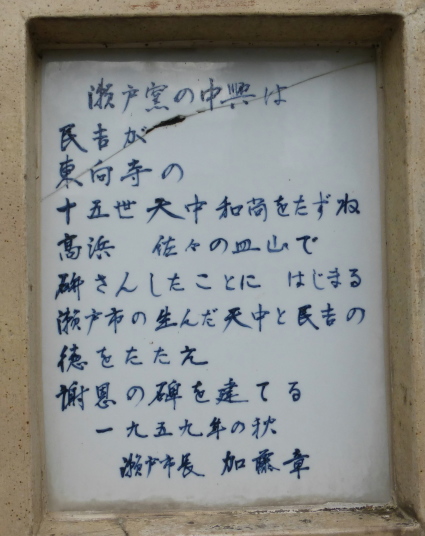 瀬戸窯の中興は
民吉が
東向寺の
十五世天中和尚をたずね
高浜　佐々の皿山で
研さんしたことに　はじまる
瀬戸市の生んだ天中と民吉の
徳をたたえ
謝恩の碑を建てる
一九五九年の秋
瀬戸市長　加藤章